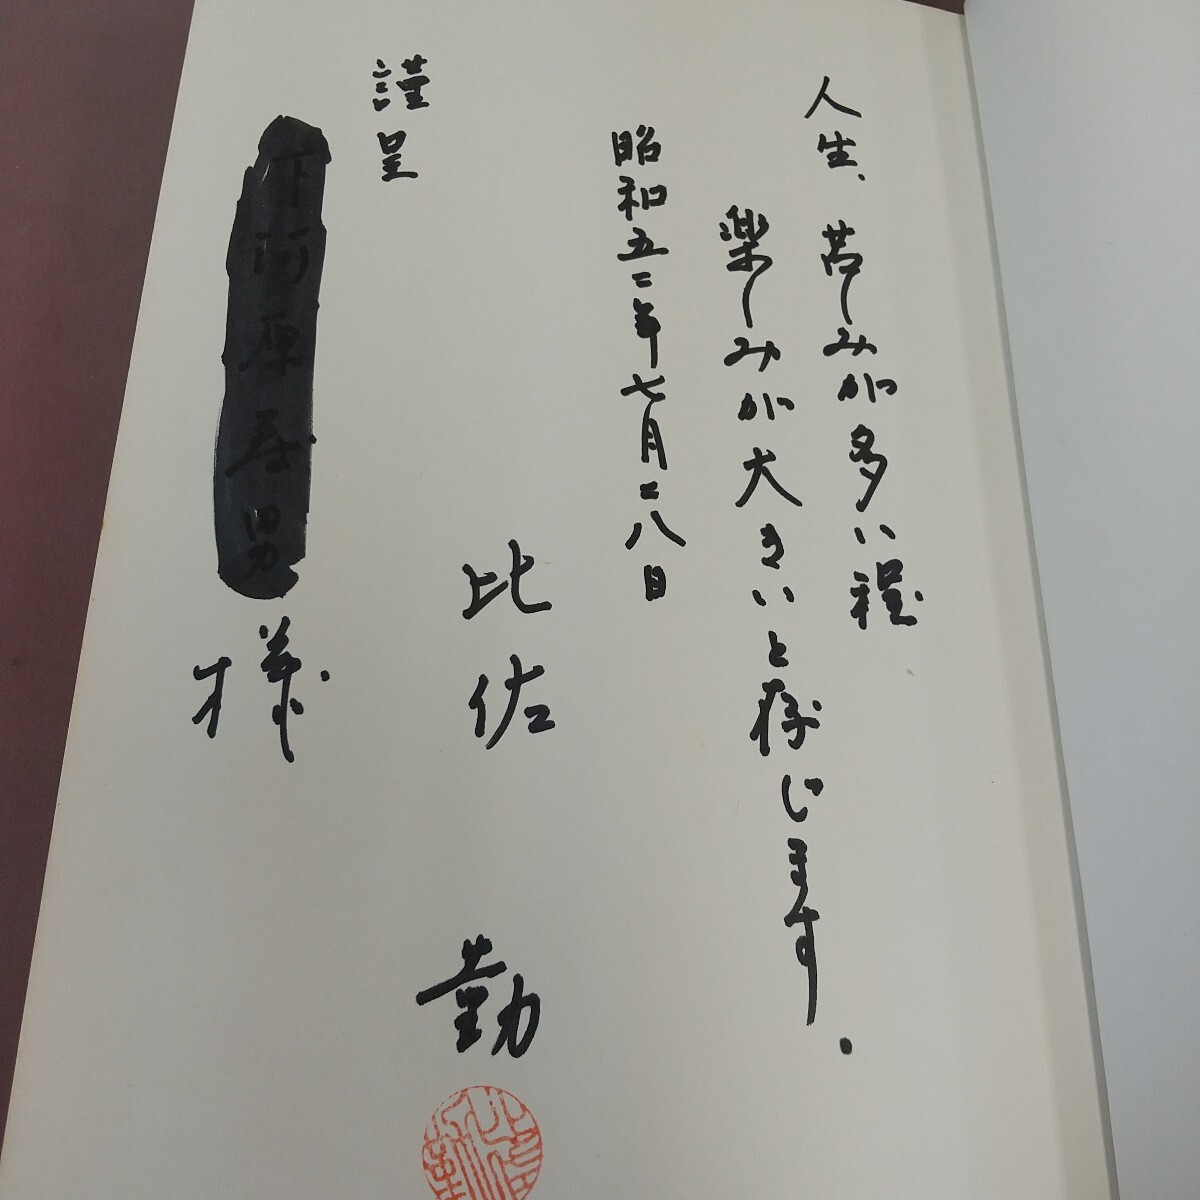 人生、苦しみが多い程
楽しみが大きいと存じます.
昭和五二年七月二八日
比佐 勤
謹呈
様